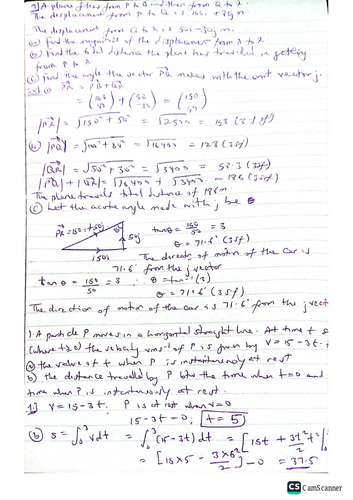 2) A plane flies from P to Q and then from Q to R.
The displacement from P to Q is 100i + 80j m
The displacement from Q to R is 50i - 30j m.
(a) Find the magnitude of the displacement from P to R.
(b) Find the total distance the plane has travelled in getting
from P to R
(c) Find the angle the vector PR makes with the unit vector j.
PR = PQ + QR
= (100 80) + (50 -30) = (150 50)
|PR| = √150² + 50² = √2500 = 158 (3sf)
(b) |PQ| = √100² + 80² = √16400 = 128 (3sf)
|QR| = √50² + 30² = √3400 = 58.3 (3sf)
|PQ| + |QR| = √16400 + √3400 = 186 (3sf)
The plane travels total distance of 186m
(c) Let the acute angle made with j be θ
PR = 150i + 50j
θ
50j
150i
tanθ = 150/50 = 3
θ = 71.6° (3sf)
The direction of motion of the car is
71.6° from the j vector
tan θ = 150/50 = 3 ∴ θ = tan⁻¹(3)
θ = 71.6° (3sf)
The direction of motion of the car is 71.6° from the j vect
1. A particle P moves in a horizontal straight line. At time t s
(where t≥0) the velocity v ms⁻¹ of P is given by v = 15 - 3t.
(a) the value of t when P is instantaneously at rest
b) the distance travelled by P btw the time when t=0 and
time when P is instantaneously at rest
V = 15 - 3t, P is at rest when v=0
15 - 3t = 0, t = 5
(b) s = ∫ v dt = ∫ (15 - 3t) dt = [15t + 3t²/2]
= [15x5 - 3x5²/2] - 0 = 37.5
CS CamScanner